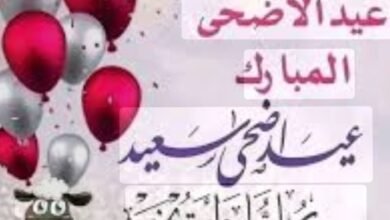 عيد الأضحى
المبارك
عيد اضحى سعيد